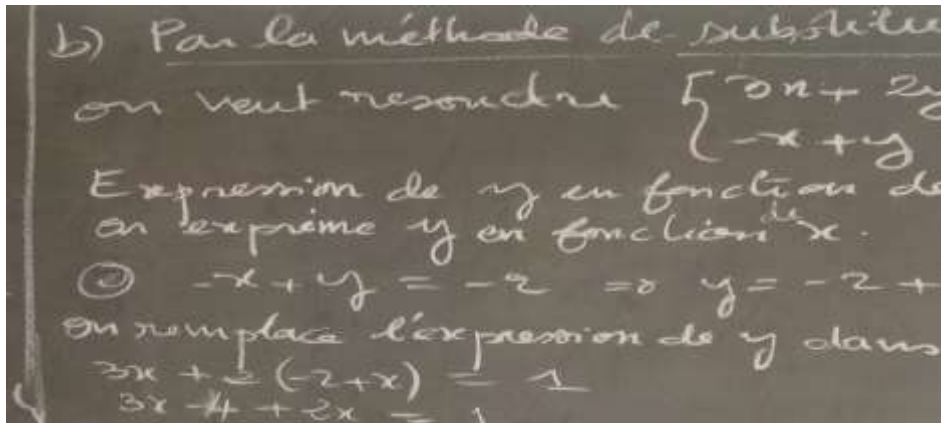 b) Par la méthode de substitu
on veut resoudre { 3x + 2y
-x + y
Expression de y en fonction de
on exprime y en fonction de x.
② -x + y = -2 => y = -2 +
on remplace l'expression de y dans
3x + 2 (-2+x) = 1
3x - 4 + 2x = 1